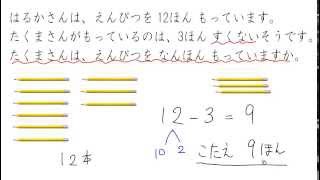 はるかさんは、えんぴつを 12ほん もっています。
たくまさんがもっているのは、3ぼん すくないそうです。
たくまさんは、えんぴつを なんぼん もっていますか。
12-3=9
10 2
12本
こたえ 9ほん